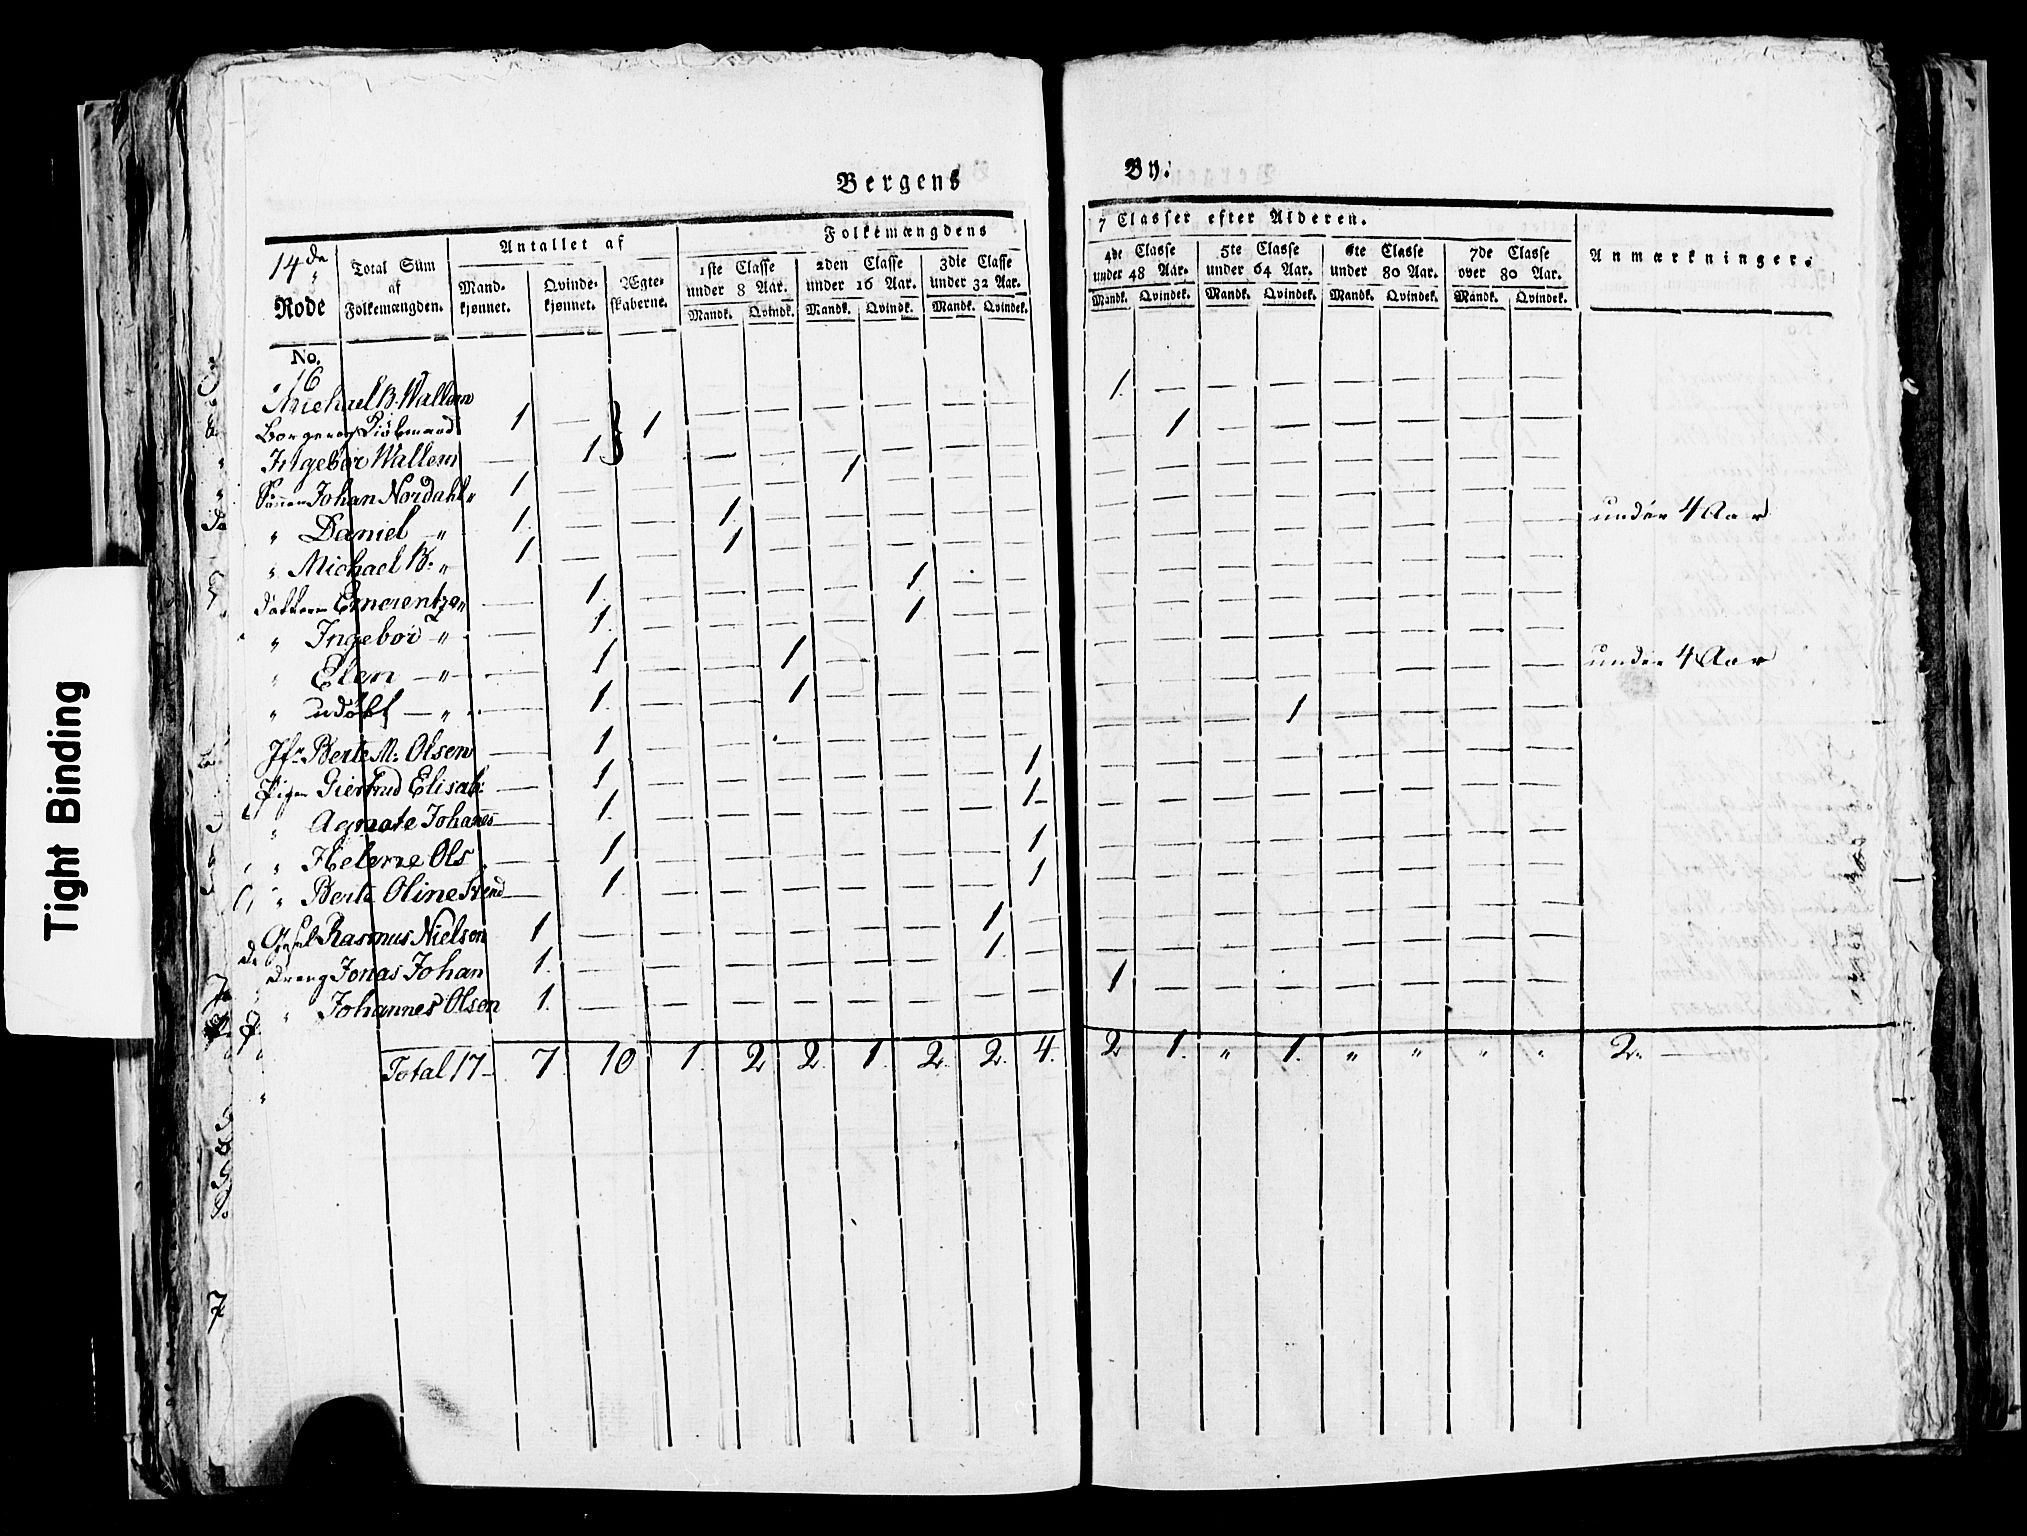 Tight Binding
Bergens By.
14de Rode
Total Süm af Folkemængden.
Antallet af
Mandkjønnet.
Qvindekjønnet.
Ægteskaberne.
Folkemængdens 7 Classer efter Alderen.
1ste Classe under 8 Aar.
2den Classe under 16 Aar.
3die Classe under 32 Aar.
4de Classe under 48 Aar.
5te Classe under 64 Aar.
6te Classe under 80 Aar.
7de Classe over 80 Aar.
Anmærkninger.
Mandk. Qvindk. Mandk. Qvindk. Mandk. Qvindek. Mandk. Qvindek. Mandk. Qvindek. Mandk. Qvindek. Mandk. Qvindek.
No.
16
Michael B. Wallem 1 — 1 — — — — — — 1. — — — — — — —
Ingebor Wallem — 1 — — — — — — — 1 — — — — — —
Johan Nordahl " 1 — — — — 1 — — —
" Daniel — " 1. — — 1. — — — — — under 4 Aar
" Michael B: " 1 — — 1 — — — — —
Emerentze " — 1. — — — — 1. — —
" Ingebor — " — 1. — — — — 1. — —
" Elen — " — 1 — — 1 — — — —
" udøbt — " — 1. — — 1 — — — — under 4 Aar
Jfr Berte M. Olsen — 1 — — — — — — — — — — 1 — — — —
Pigen Giertrud Elisab: — 1 — — — — — — 1
" Agnate Johanes — 1. — — — — — — 1
" Helene Ols — 1 — — — — — — 1
" Berte Oline Svend — 1. — — — — — — 1
Rasmus Nielsen 1 — — — — — — 1 —
Dreng Jonas Johan 1. — — — — — — 1. —
" Johannes Olsen 1. — — — — — — — — 1 — — — — — — —
Total 17 — 7. 10 1. 2 2. 1. 2. 2. 4. 2 1. " 1. " " " " 2.